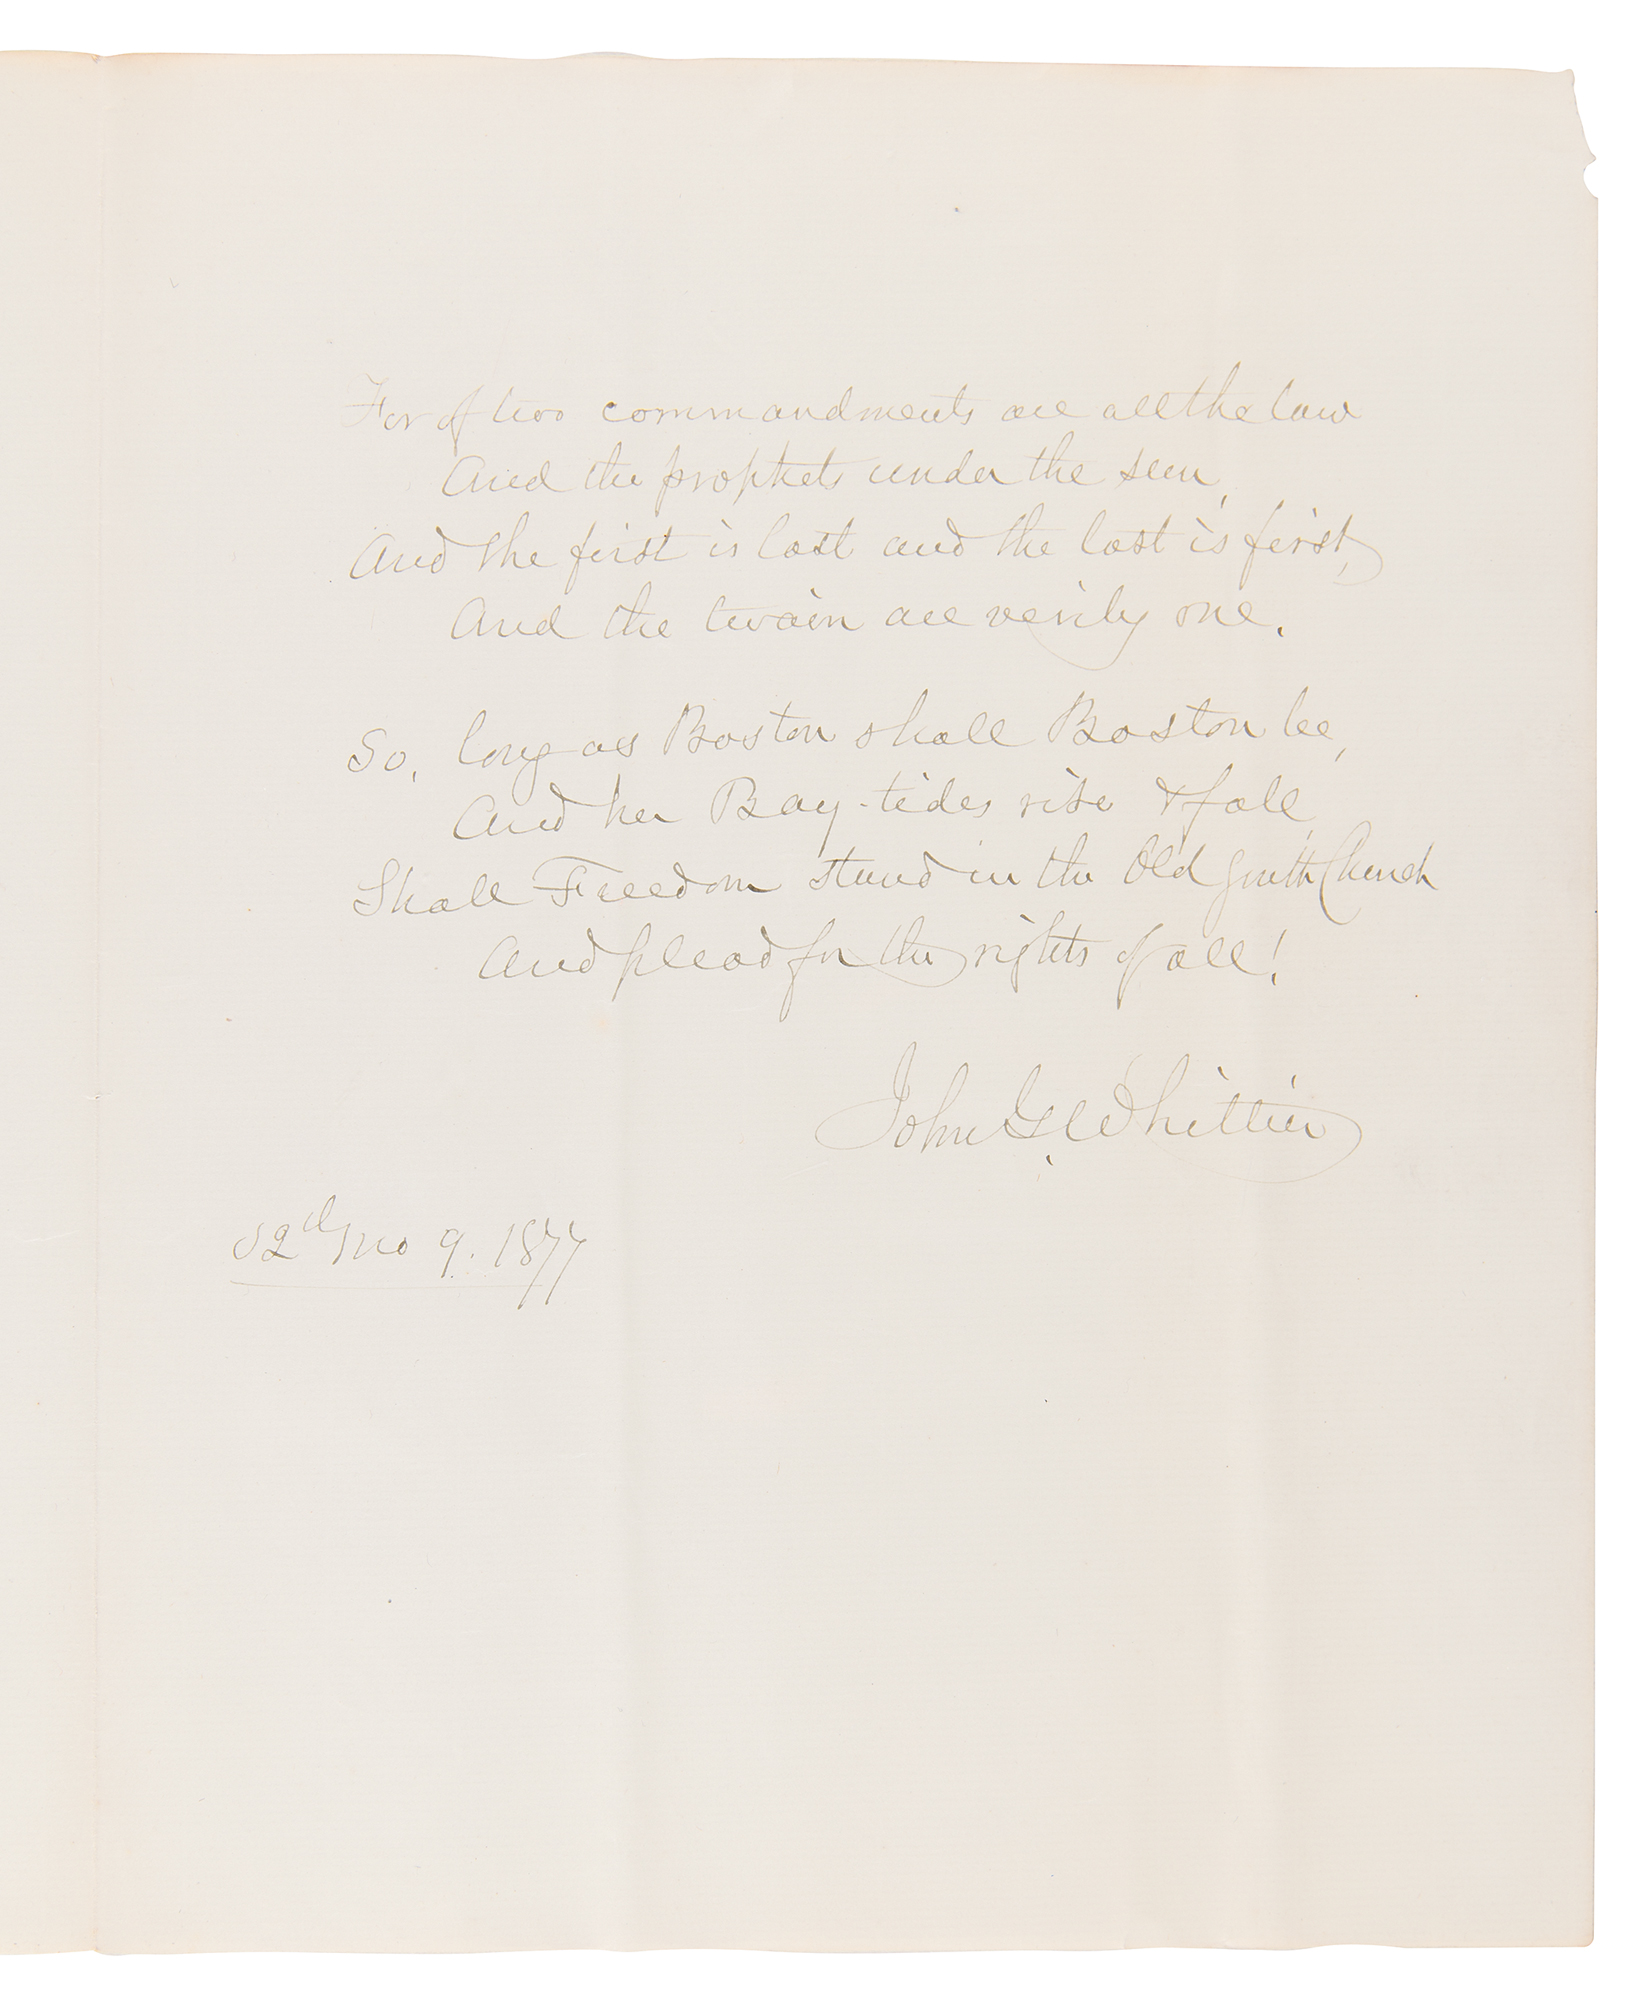 For of two commandments are all the law
And the prophets under the sun,
And the first is last and the last is first,
And the twain are verily one.
So, long as Boston shall Boston be,
And her Bay-tides rise & fall,
Shall Freedom stand in the Old South Church
And plead for the rights of all!
John G. Whittier
2d Mo 9. 1877